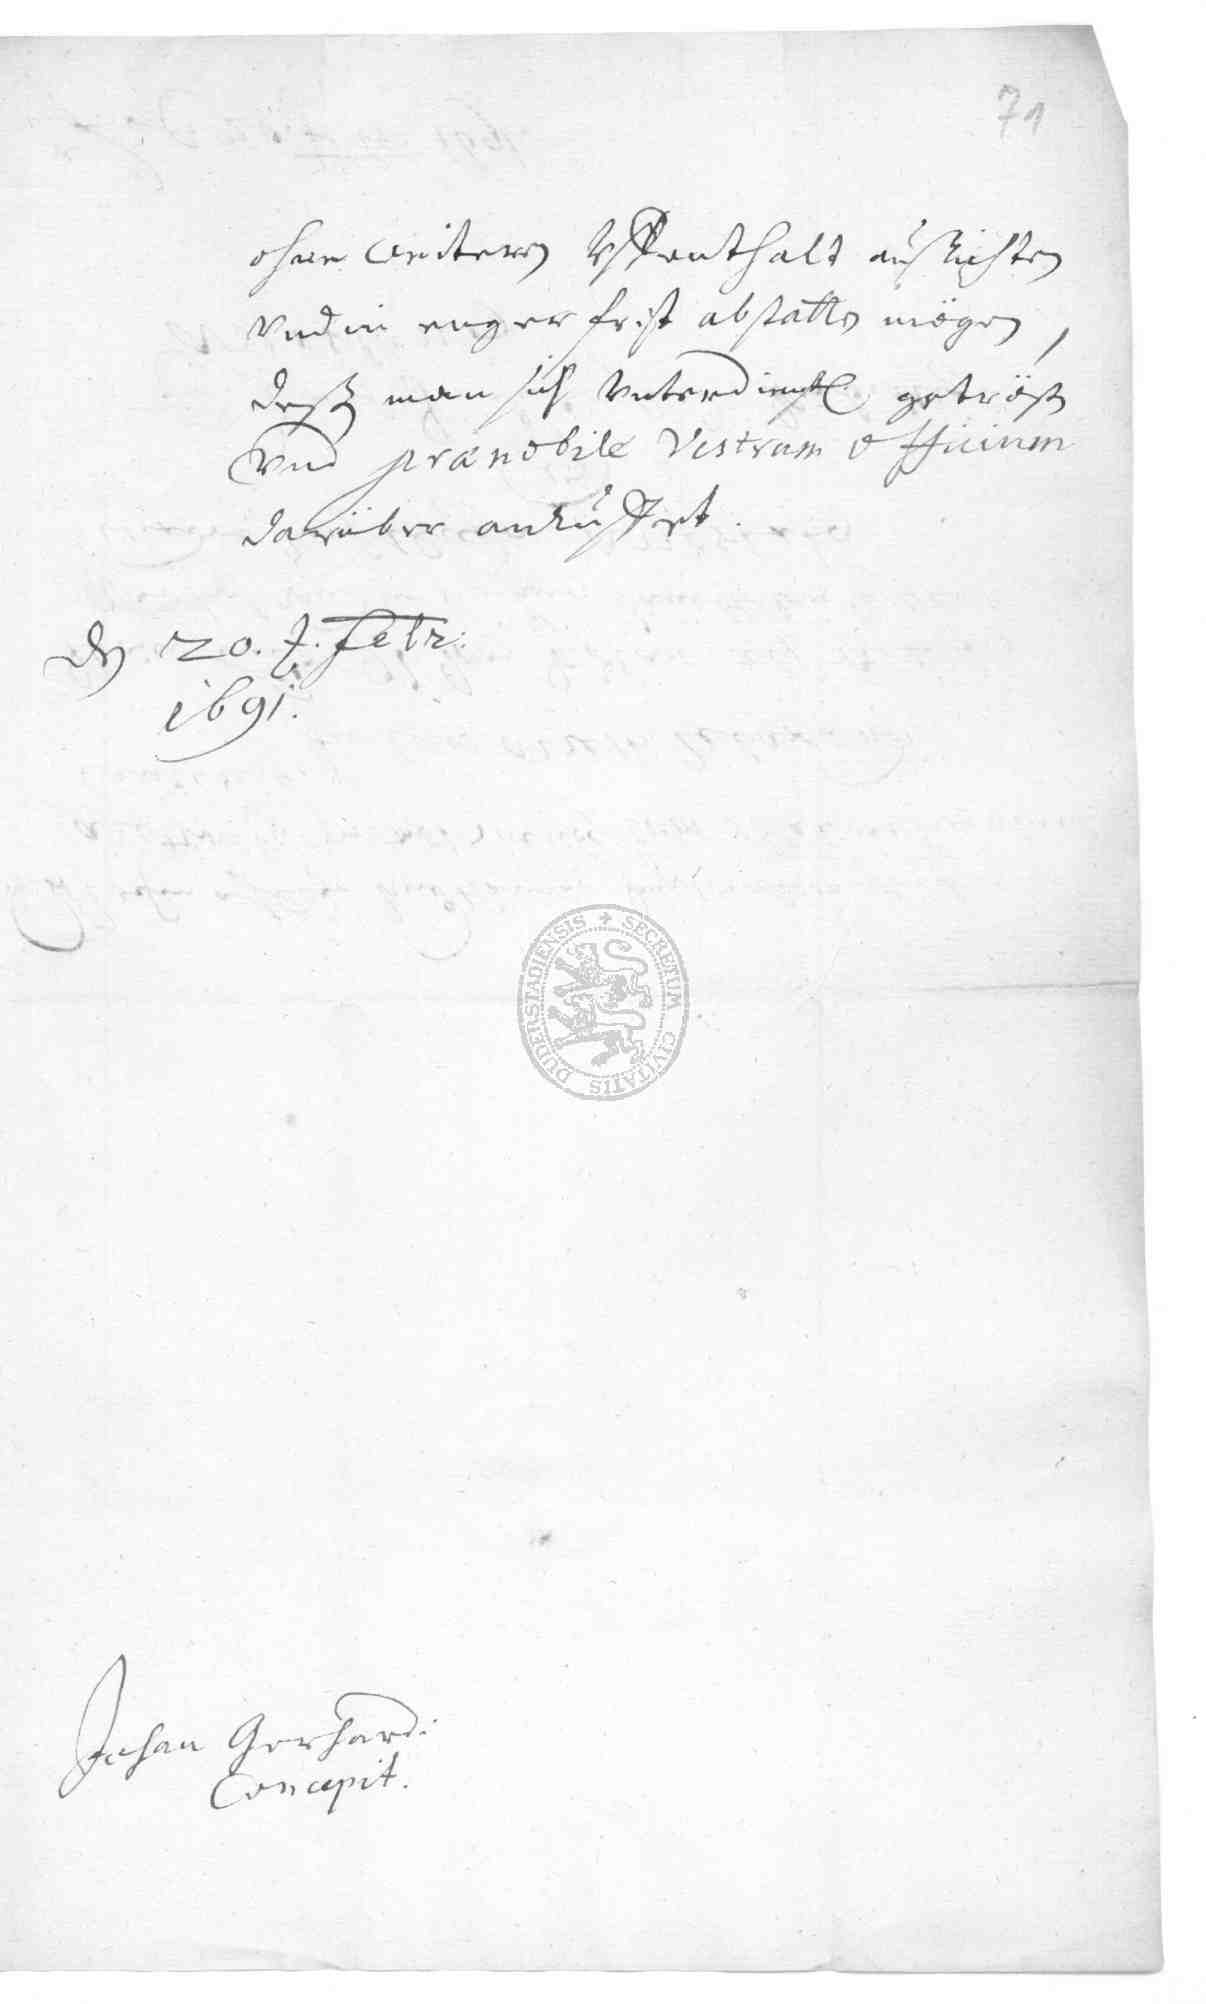 71
ohne weitern Uffenthalt außrichten
Vnd in enger frist abstatten mögen,
deßen man sich Vnterdienstl. getröst
Vnd prænobile Vestrum officium
darüber anruffet.
Den 20. t. Febr:
1691.
SECRETUM CIVITATIS DUDERSTADIENSIS
Johan Gerhardi
Concepit.